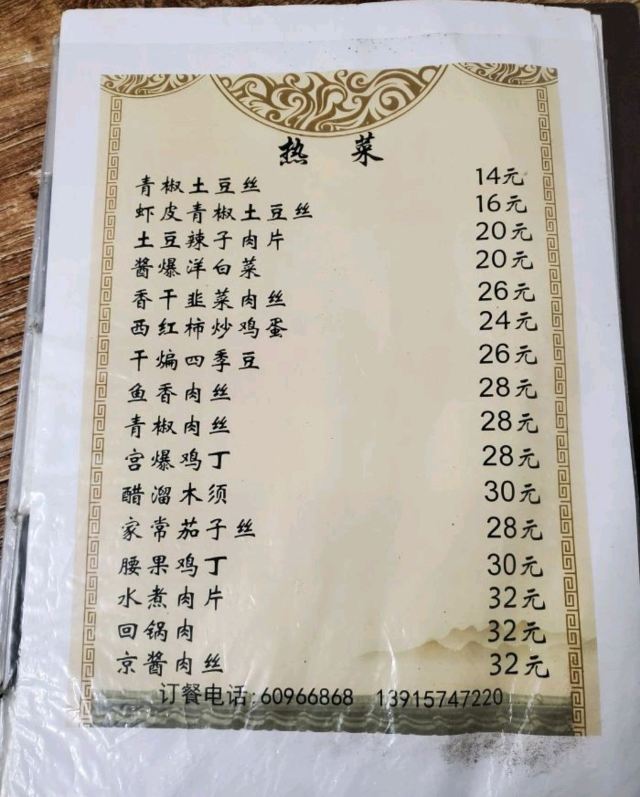 热 菜
青椒土豆丝 14元
虾皮青椒土豆丝 16元
土豆辣子肉片 20元
酱爆洋白菜 20元
香干韭菜肉丝 26元
西红柿炒鸡蛋 24元
干煸四季豆 26元
鱼香肉丝 28元
青椒肉丝 28元
宫爆鸡丁 28元
醋溜木须 30元
家常茄子丝 28元
腰果鸡丁 30元
水煮肉片 32元
回锅肉 32元
京酱肉丝 32元
订餐电话:60966868 13915747220